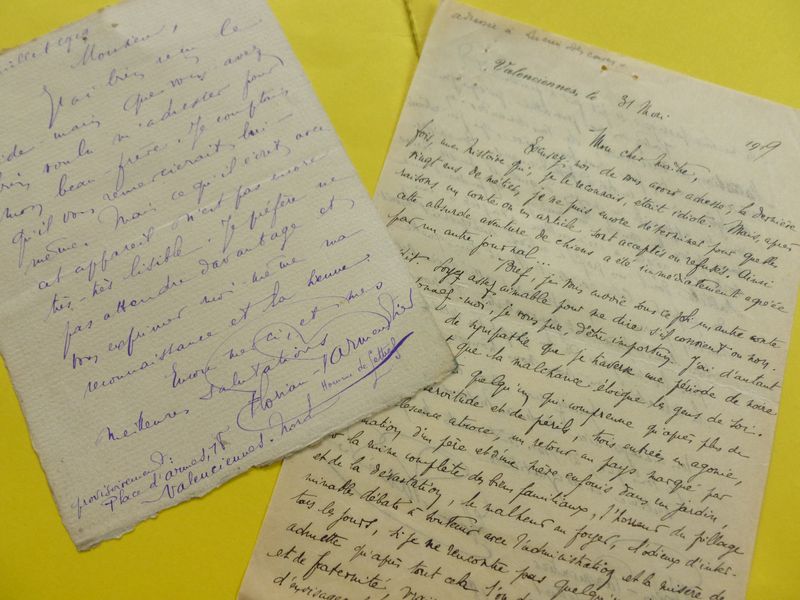 juillet 1919
Monsieur,
J'ai bien reçu le
mais que vous avez
bien voulu m'adresser pour
mon beau-frère. Je comptais
qu'il vous remercierait lui-
même. Mais ce qu'il écrit avec
cet appareil n'est pas encore
très-très lisible. Je préfère ne
pas attendre davantage et
vous exprimer moi-même ma
reconnaissance et la sienne.
Encore merci, et mes
meilleures salutations
Florian-Parmentier
Homme de Lettres
provisoirement:
Place d'armes, 75
Valenciennes. Nord
adressée à Lucien Descaves
Valenciennes, le 31 Mai 1919
Mon cher maître,
Excusez-moi de vous avoir adressé, la dernière
fois, une histoire qui, je le reconnais, était idiote. Mais, après
vingt ans de métier, je ne puis encore déterminer pour quelles
raisons un conte ou un article sont acceptés ou refusés. Ainsi
cette absurde aventure de chiens a été immédiatement agréée
par un autre journal...
Bref je vous envoie sous ce pli un autre conte
Soyez assez aimable pour me dire s'il convient ou non.
-moi, je vous prie, d'être importun. J'ai d'autant
de sympathie que je traverse une période de noire
que la malchance éloigne les gens de soi.
quelqu'un qui comprenne qu'après plus de
servitude et de périls, trois entrées en agonie,
atroce, un retour au pays marqué par
d'un père et d'une mère enfouis dans un jardin,
la ruine complète des biens familiaux, l'horreur du pillage
et de la dévastation, le malheur au foyer, l'odieux d'inter-
minables débats à soutenir avec l'administration et la misère de
tous les jours, si je ne rencontre pas quelqu'
admette qu'après tout cela l'on
et de fraternité,
d'envisager